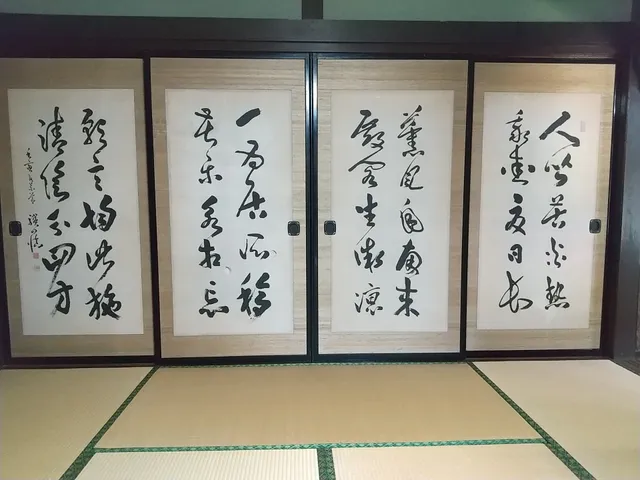 人皆苦炎熱
我愛夏日長
薫風自南来
殿閣生微涼
一為居所移
苦楽永相忘
願言均此施
清陰分四方